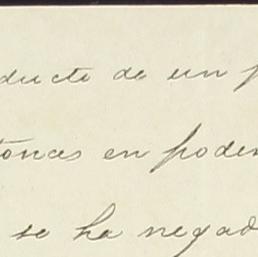 ducto de un p
tonces en poder
se ha negad